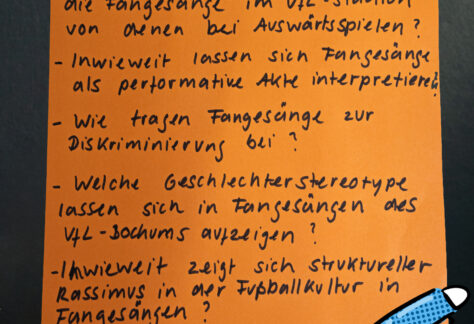 die Fangesänge im VfL-Stadion
von denen bei Auswärtsspielen?
- Inwieweit lassen sich Fangesänge
als performative Akte interpretieren?
- Wie tragen Fangesänge zur
Diskriminierung bei?
- Welche Geschlechterstereotype
lassen sich in Fangesängen des
VfL-Bochums aufzeigen?
- Inwieweit zeigt sich struktureller
Rassimus in der Fußballkultur in
Fangesängen?